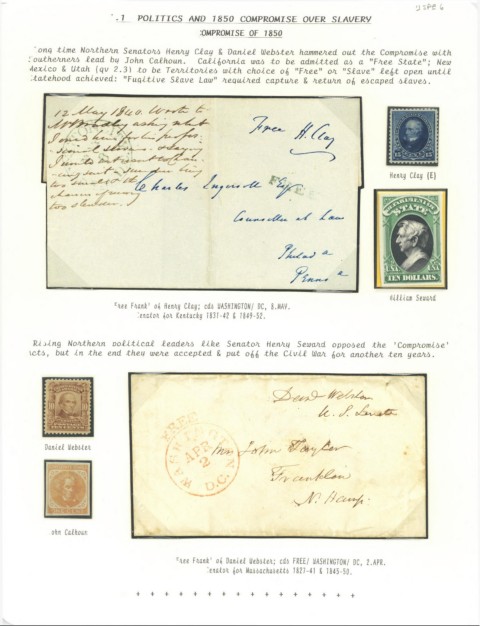 .1 POLITICS AND 1850 COMPROMISE OVER SLAVERY
COMPROMISE OF 1850
Long time Northern Senators Henry Clay & Daniel Webster hammered out the Compromise with
Southerners lead by John Calhoun. California was to be admitted as a "Free State"; New
Mexico & Utah (qv 2.3) to be Territories with choice of "Free" or "Slave" left open until
statehood achieved: "Fugitive Slave Law" required capture & return of escaped slaves.
12 May 1840. Wrote to
asking what
two slender.
Free H. Clay
FREE
Charles Ingersoll Esq
Counsellor at Law
Philad a
Penns a
Henry Clay (E)
STATE
U.S.A.
TEN DOLLARS.
William Seward
'Free Frank' of Henry Clay; cds WASHINGTON/ DC, 8.MAY.
Senator for Kentucky 1831-42 & 1849-52.
Rising Northern political leaders like Senator Henry Seward opposed the 'Compromise'
acts, but in the end they were accepted & put off the Civil War for another ten years.
Daniel Webster
John Calhoun
Danl Webster
U. S. Senate
FREE
WASHINGTON D.C.
APR
2
John Taylor
Franklin
N. Hamp.
'Free Frank' of Daniel Webster; cds FREE/ WASHINGTON/ DC, 2.APR.
Senator for Massachusetts 1827-41 & 1845-50.
+ + + + + + + + + + + + + + + +